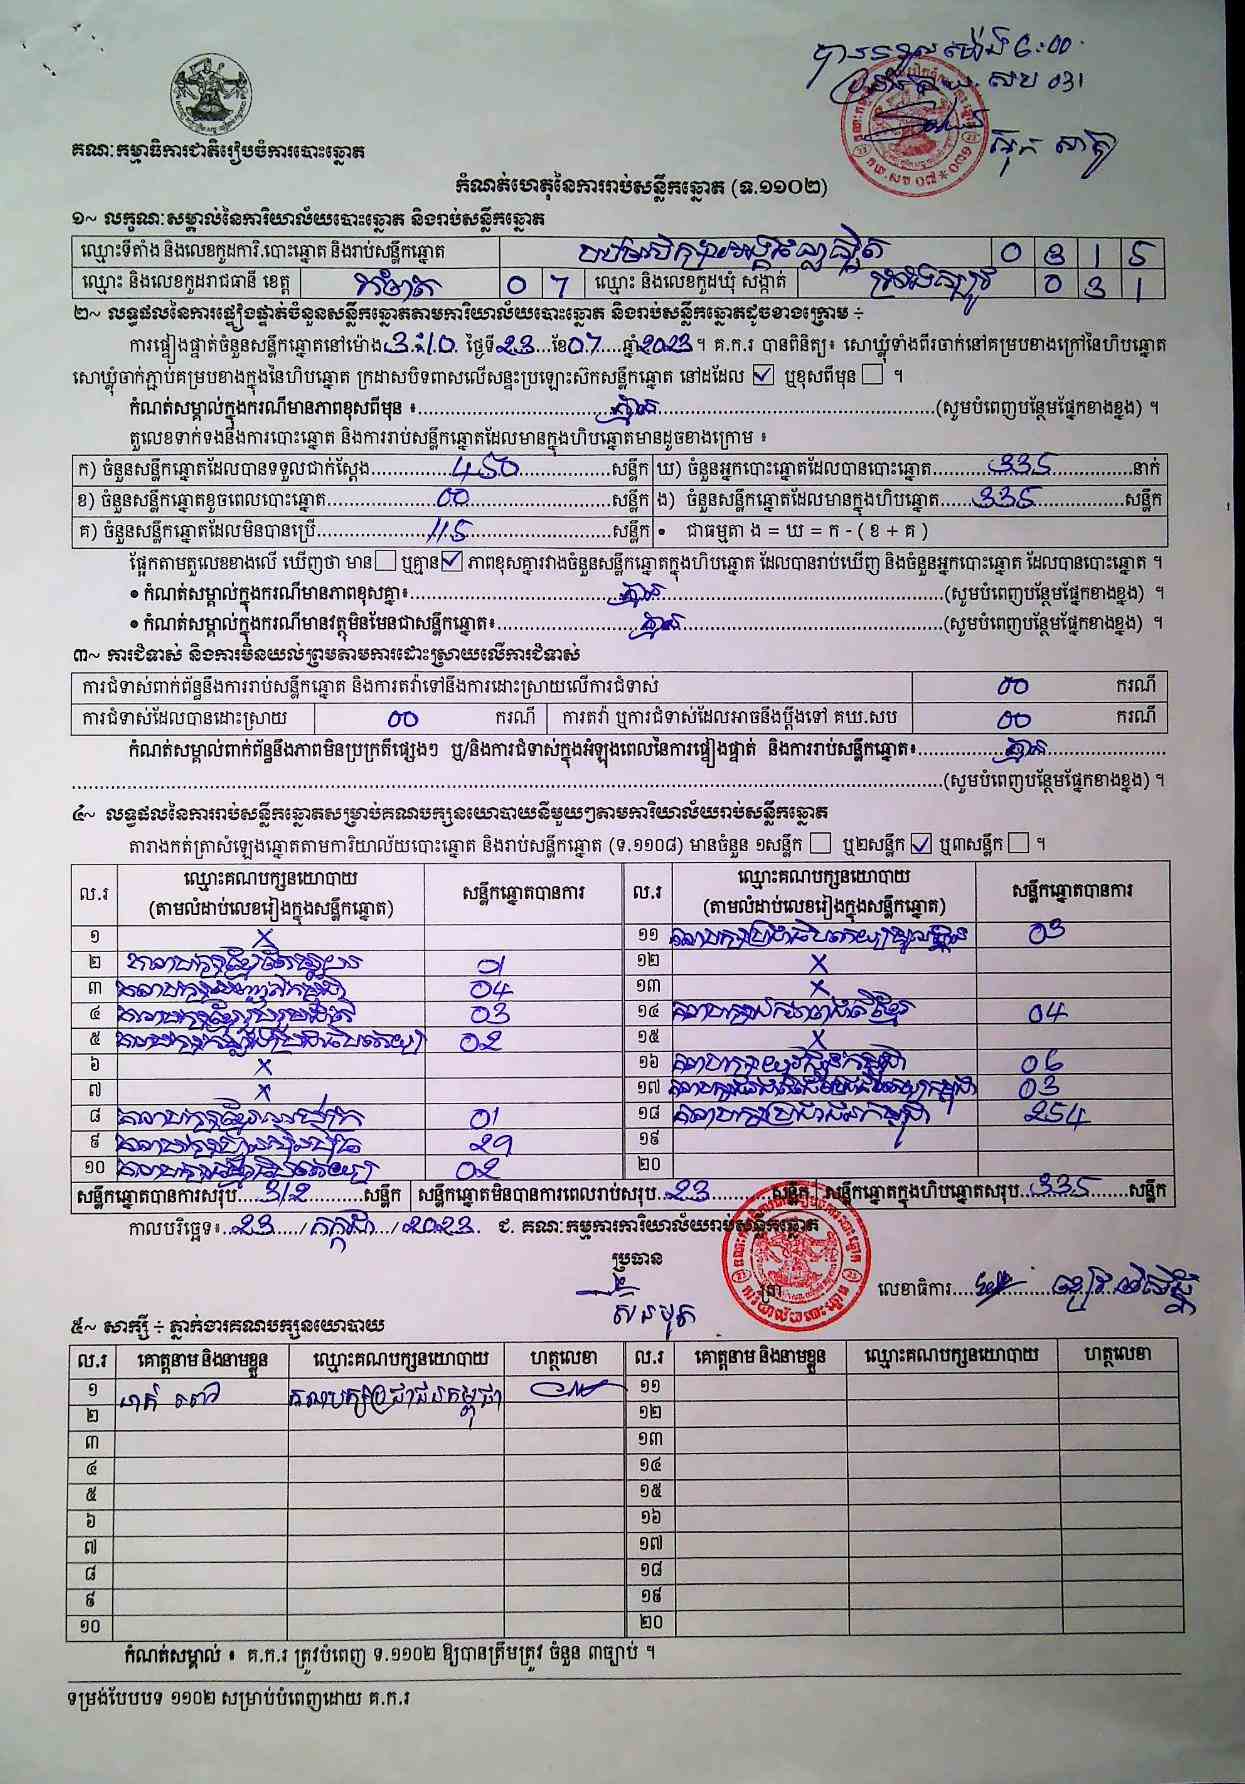 បានទទួលម៉ោង 6:00
សប 031
គណៈកម្មាធិការជាតិរៀបចំការបោះឆ្នោត
កំណត់ហេតុនៃការរាប់សន្លឹកឆ្នោត (ទ.១១០២)
១~ លក្ខណៈសម្គាល់នៃការិយាល័យបោះឆ្នោត និងរាប់សន្លឹកឆ្នោត
ឈ្មោះទីតាំង និងលេខកូដការិ.បោះឆ្នោត និងរាប់សន្លឹកឆ្នោត 0 3 1 5
ឈ្មោះ និងលេខកូដរាជធានី ខេត្ត កំពត 0 7 ឈ្មោះ និងលេខកូដឃុំ សង្កាត់ 0 3 1
២~ លទ្ធផលនៃការផ្ទៀងផ្ទាត់ចំនួនសន្លឹកឆ្នោតតាមការិយាល័យបោះឆ្នោត និងរាប់សន្លឹកឆ្នោតដូចខាងក្រោម ÷
ការផ្ទៀងផ្ទាត់ចំនួនសន្លឹកឆ្នោតនៅម៉ោង 3:10 ថ្ងៃទី 23 ខែ 07 ឆ្នាំ 2023 ។ គ.ក.រ បានពិនិត្យ៖ សោឃ្លុំទាំងពីរចាក់នៅគម្របខាងក្រៅនៃហិបឆ្នោត
សោឃ្លុំចាក់ភ្ជាប់គម្របខាងក្នុងនៃហិបឆ្នោត ក្រដាសបិទពាសលើសន្ទះប្រឡោះស៊កសន្លឹកឆ្នោត នៅដដែល ☑ ឬខុសពីមុន ☐ ។
កំណត់សម្គាល់ក្នុងករណីមានភាពខុសពីមុន ៖ គ្មាន (សូមបំពេញបន្ថែមផ្នែកខាងខ្នង) ។
តួលេខទាក់ទងនឹងការបោះឆ្នោត និងការរាប់សន្លឹកឆ្នោតដែលមានក្នុងហិបឆ្នោតមានដូចខាងក្រោម ៖
ក) ចំនួនសន្លឹកឆ្នោតដែលបានទទួលជាក់ស្តែង 450 សន្លឹក ឃ) ចំនួនអ្នកបោះឆ្នោតដែលបានបោះឆ្នោត 335 នាក់
ខ) ចំនួនសន្លឹកឆ្នោតខូចពេលបោះឆ្នោត 00 សន្លឹក ង) ចំនួនសន្លឹកឆ្នោតដែលមានក្នុងហិបឆ្នោត 335 សន្លឹក
គ) ចំនួនសន្លឹកឆ្នោតដែលមិនបានប្រើ 115 សន្លឹក • ជាធម្មតា ង = ឃ = ក - ( ខ + គ )
ផ្អែកតាមតួលេខខាងលើ ឃើញថា មាន ☐ ឬគ្មាន ☑ ភាពខុសគ្នារវាងចំនួនសន្លឹកឆ្នោតក្នុងហិបឆ្នោត ដែលបានរាប់ឃើញ និងចំនួនអ្នកបោះឆ្នោត ដែលបានបោះឆ្នោត ។
• កំណត់សម្គាល់ក្នុងករណីមានភាពខុសគ្នា៖ គ្មាន (សូមបំពេញបន្ថែមផ្នែកខាងខ្នង) ។
• កំណត់សម្គាល់ក្នុងករណីមានវត្ថុមិនមែនជាសន្លឹកឆ្នោត៖ គ្មាន (សូមបំពេញបន្ថែមផ្នែកខាងខ្នង) ។
៣~ ការជំទាស់ និងការមិនយល់ព្រមតាមការដោះស្រាយលើការជំទាស់
ការជំទាស់ពាក់ព័ន្ធនឹងការរាប់សន្លឹកឆ្នោត និងការតវ៉ាទៅនឹងការដោះស្រាយលើការជំទាស់ 00 ករណី
ការជំទាស់ដែលបានដោះស្រាយ 00 ករណី ការតវ៉ា ឬការជំទាស់ដែលអាចនឹងប្តឹងទៅ គឃ.សប 00 ករណី
កំណត់សម្គាល់ពាក់ព័ន្ធនឹងភាពមិនប្រក្រតីផ្សេងៗ ឬ/និងការជំទាស់ក្នុងអំឡុងពេលនៃការផ្ទៀងផ្ទាត់ និងការរាប់សន្លឹកឆ្នោត៖ គ្មាន
(សូមបំពេញបន្ថែមផ្នែកខាងខ្នង) ។
៤~ លទ្ធផលនៃការរាប់សន្លឹកឆ្នោតសម្រាប់គណបក្សនយោបាយនីមួយៗតាមការិយាល័យរាប់សន្លឹកឆ្នោត
តារាងកត់ត្រាសំឡេងឆ្នោតតាមការិយាល័យបោះឆ្នោត និងរាប់សន្លឹកឆ្នោត (ទ.១១០៨) មានចំនួន ១សន្លឹក ☐ ឬ២សន្លឹក ☑ ឬ៣សន្លឹក ☐ ។
ល.រ ឈ្មោះគណបក្សនយោបាយ (តាមលំដាប់លេខរៀងក្នុងសន្លឹកឆ្នោត) សន្លឹកឆ្នោតបានការ ល.រ ឈ្មោះគណបក្សនយោបាយ (តាមលំដាប់លេខរៀងក្នុងសន្លឹកឆ្នោត) សន្លឹកឆ្នោតបានការ
១ X ១១ គណបក្សប្រជាធិបតេយ្យមូលដ្ឋាន 03
២ 01 ១២ X
៣ 04 ១៣ X
៤ គណបក្សខ្មែររួបរួមជាតិ 03 ១៤ 04
៥ 02 ១៥ X
៦ X ១៦ គណបក្សយុវជនកម្ពុជា 06
៧ X ១៧ 03
៨ 01 ១៨ គណបក្សប្រជាជនកម្ពុជា 254
៩ គណបក្សហ្វ៊ុនស៊ិនប៉ិច 29 ១៩
១០ 02 ២០
សន្លឹកឆ្នោតបានការសរុប 312 សន្លឹក សន្លឹកឆ្នោតមិនបានការពេលរាប់សរុប 23 សន្លឹក សន្លឹកឆ្នោតក្នុងហិបឆ្នោតសរុប 335 សន្លឹក
កាលបរិច្ឆេទ៖ 23 / កក្កដា / 2023 ជ. គណៈកម្មការការិយាល័យរាប់សន្លឹកឆ្នោត
ប្រធាន
ត្រា លេខាធិការ
៥~ សាក្សី ÷ ភ្នាក់ងារគណបក្សនយោបាយ
ល.រ គោត្តនាម និងនាមខ្លួន ឈ្មោះគណបក្សនយោបាយ ហត្ថលេខា ល.រ គោត្តនាម និងនាមខ្លួន ឈ្មោះគណបក្សនយោបាយ ហត្ថលេខា
១ គណបក្សប្រជាជនកម្ពុជា ១១
២ ១២
៣ ១៣
៤ ១៤
៥ ១៥
៦ ១៦
៧ ១៧
៨ ១៨
៩ ១៩
១០ ២០
កំណត់សម្គាល់ ៖ គ.ក.រ ត្រូវបំពេញ ទ.១១០២ ឱ្យបានត្រឹមត្រូវ ចំនួន ៣ច្បាប់ ។
ទម្រង់បែបបទ ១១០២ សម្រាប់បំពេញដោយ គ.ក.រ